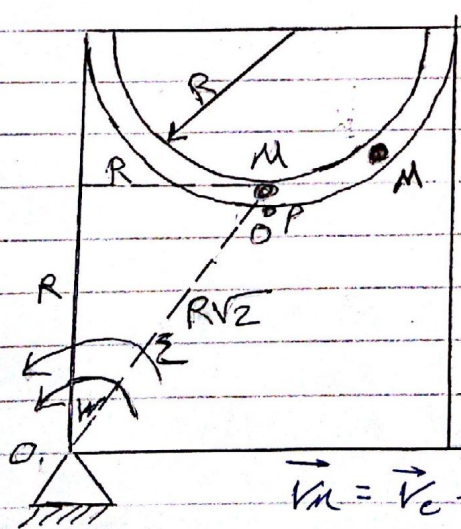 R
M
R
M
O P
R
R√2
ε
W
O₁
V⃗ₘ = V⃗ₑ